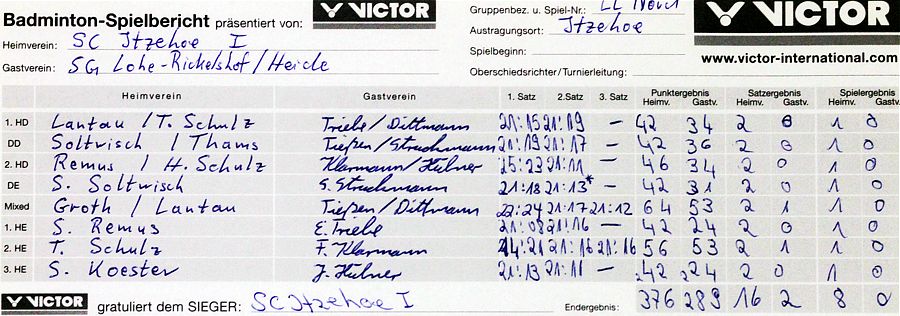 Badminton-Spielbericht präsentiert von: VICTOR
Gruppenbez. u. Spiel-Nr.: LL Nord
VICTOR
Heimverein: SC Itzehoe I
Austragungsort: Itzehoe
Gastverein: SG Lohe-Rickelshof/Heide
Spielbeginn:
www.victor-international.com
Oberschiedsrichter/Turnierleitung:
Heimverein Gastverein 1. Satz 2.Satz 3. Satz Punktergebnis Heimv. Gastv. Satzergebnis Heimv. Gastv. Spielergebnis Heimv. Gastv.
1. HD Lantau / T. Schulz Triebe/Dittmann 21:15 21:19 – 42 34 2 0 1 0
DD Soltwisch / Thams Tießen/Struchmann 21:19 21:17 – 42 36 2 0 1 0
2. HD Remus / H. Schulz Klarmann/Hübner 25:23 21:11 – 46 34 2 0 1 0
DE S. Soltwisch S. Struchmann 21:18 21:13* – 42 31 2 0 1 0
Mixed Groth / Lantau Tießen/Dittmann 22:24 21:17 21:12 64 53 2 1 1 0
1. HE S. Remus E. Triebe 21:08 21:16 – 42 24 2 0 1 0
2. HE T. Schulz F. Klarmann 14:21 21:16 21:16 56 53 2 1 1 0
3. HE S. Koester J. Hübner 21:13 21:11 – 42 24 2 0 1 0
VICTOR gratuliert dem SIEGER: SC Itzehoe I Endergebnis: 376 289 16 2 8 0